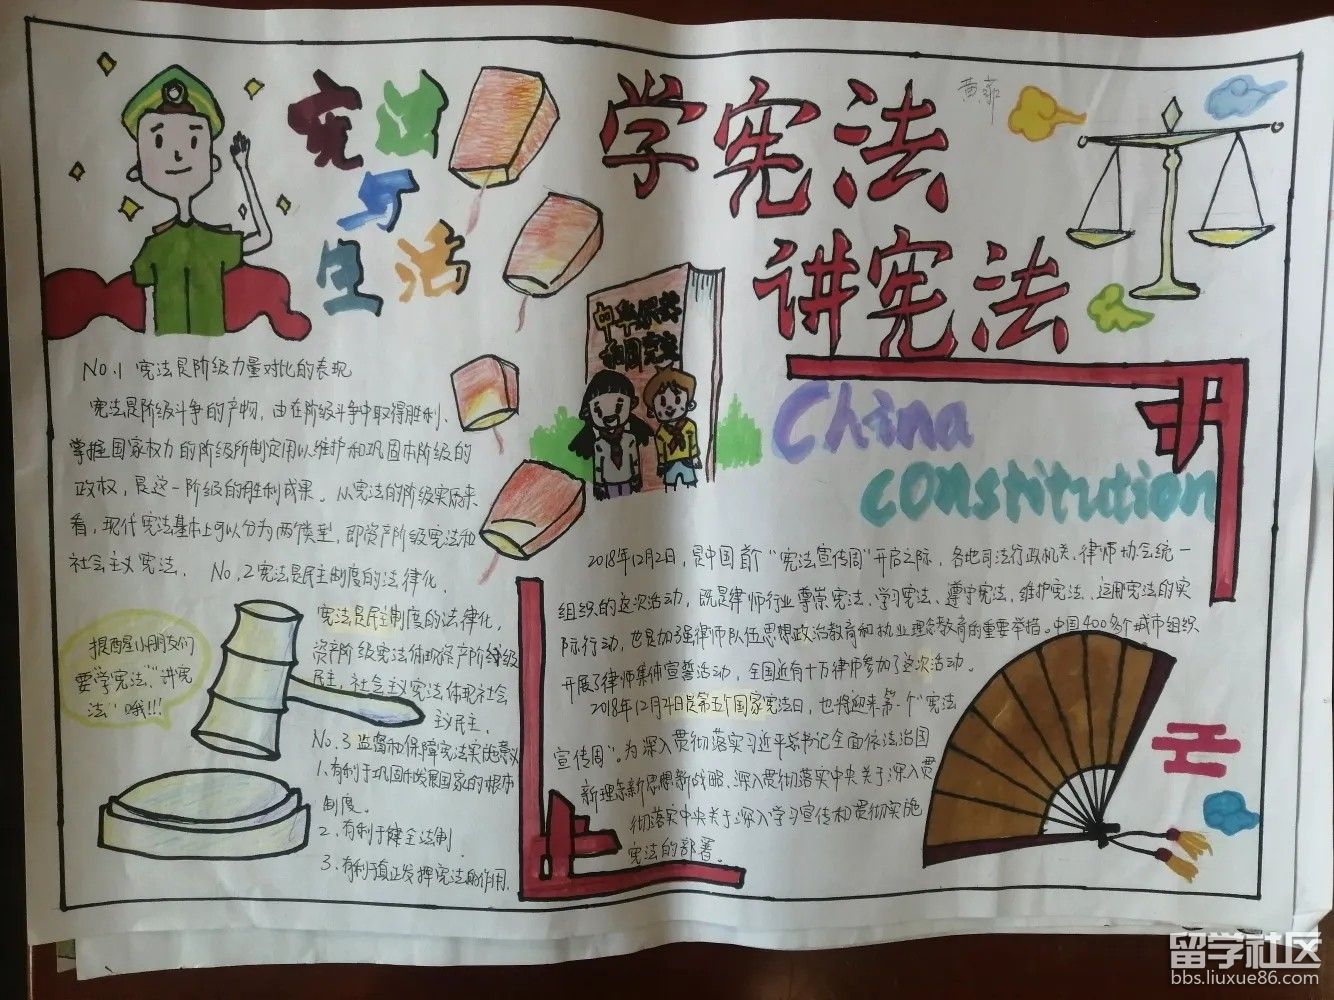 宪法
与
生活
学宪法
讲宪法
黄菲
中华人民共和国宪法
China
constitution
No.1 宪法是阶级力量对比的表现
宪法是阶级斗争的产物，由在阶级斗争中取得胜利、
掌握国家权力的阶级所制定用以维护和巩固本阶级的
政权，是这一阶级的胜利成果。从宪法的阶级实质来
看，现代宪法基本上可以分为两个类型，即资产阶级宪法和
社会主义宪法。
No.2 宪法是民主制度的法律化。
宪法是民主制度的法律化，
资产阶级宪法体现资产阶级
民主，社会主义宪法体现社会
主义民主。
提醒小朋友们
要“学宪法”“讲宪
法”哦!!!
No.3 监督和保障宪法实施意义
1.有利于巩固和发展国家的根本
制度。
2.有利于健全法制
3.有利于真正发挥宪法的作用.
2018年12月2日，是中国首个“宪法宣传周”开启之际，各地司法行政机关、律师协会统一
组织的这次活动，既是律师行业尊崇宪法、学习宪法、遵守宪法、维护宪法、运用宪法的实
际行动，也是加强律师队伍思想政治教育和执业理念教育的重要举措。中国400多个城市组织
开展了律师集体宣誓活动，全国近有十万律师参加了这次活动。
2018年12月4日是第五个国家宪法日，也将迎来第一个“宪法
宣传周”。为深入贯彻落实习近平总书记全面依法治国
新理念新思想新战略、深入贯彻落实中央关于深入贯
彻落实中央关于深入学习宣传和贯彻实施
宪法的部署。
留学社区
bbs.liuxue86.com